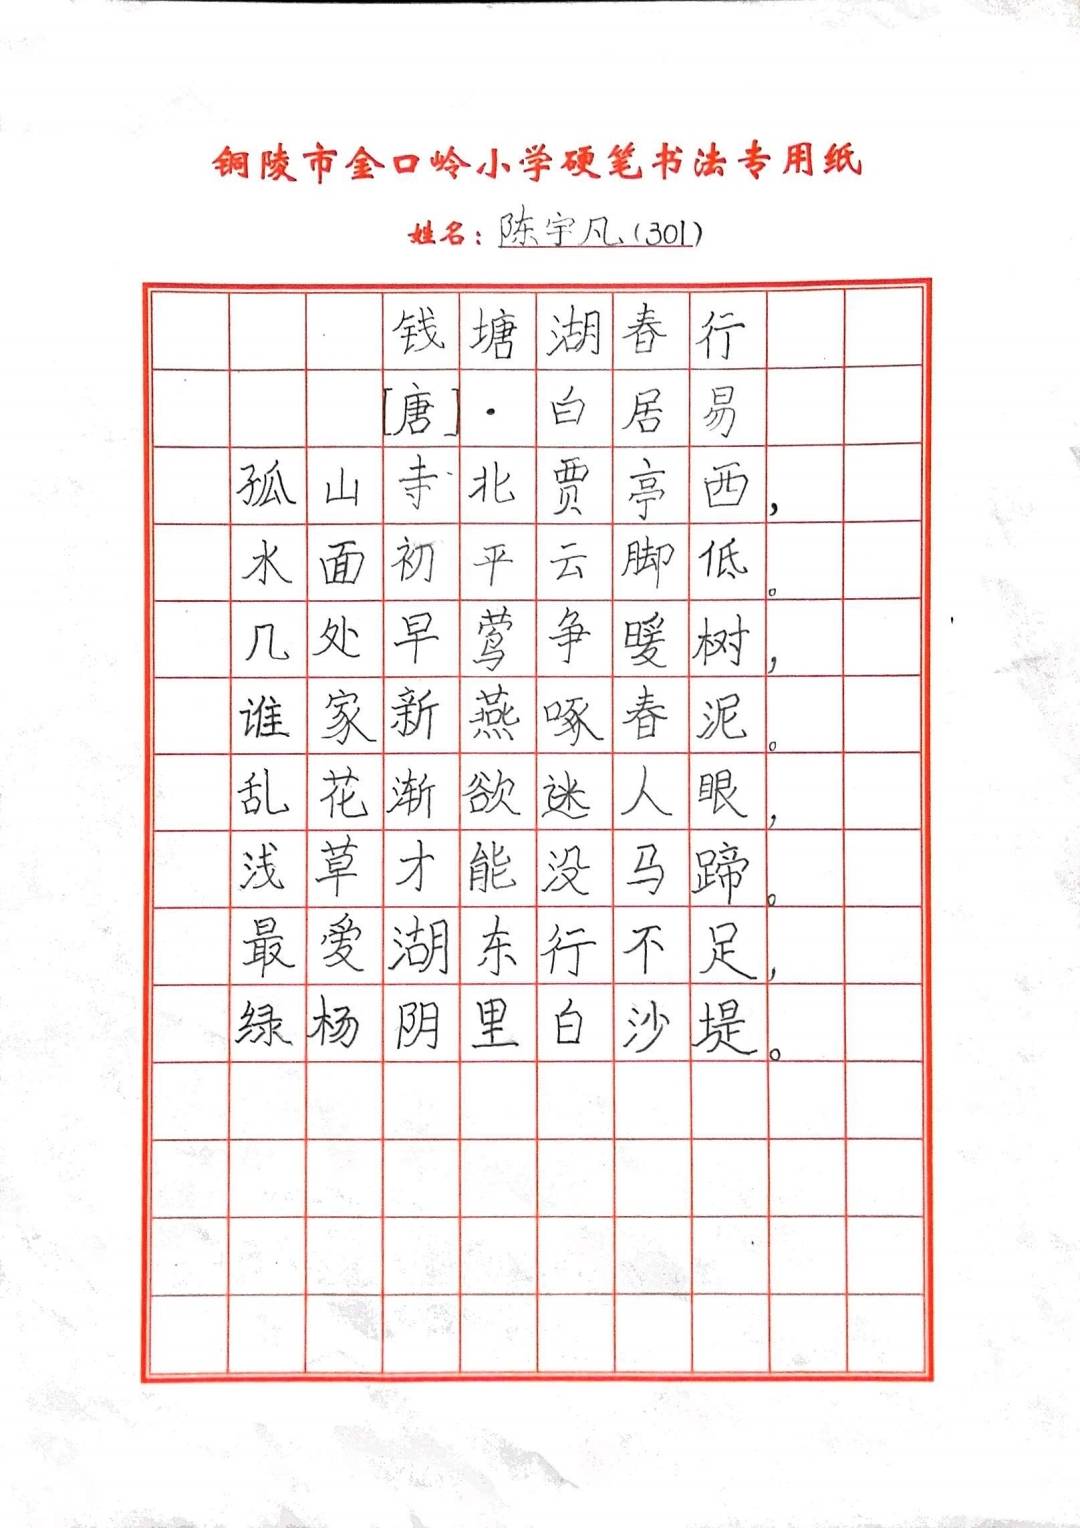 铜陵市金口岭小学硬笔书法专用纸
姓名：陈宇凡(301)
钱塘湖春行
[唐]·白居易
孤山寺北贾亭西，
水面初平云脚低。
几处早莺争暖树，
谁家新燕啄春泥。
乱花渐欲迷人眼，
浅草才能没马蹄。
最爱湖东行不足，
绿杨阴里白沙堤。